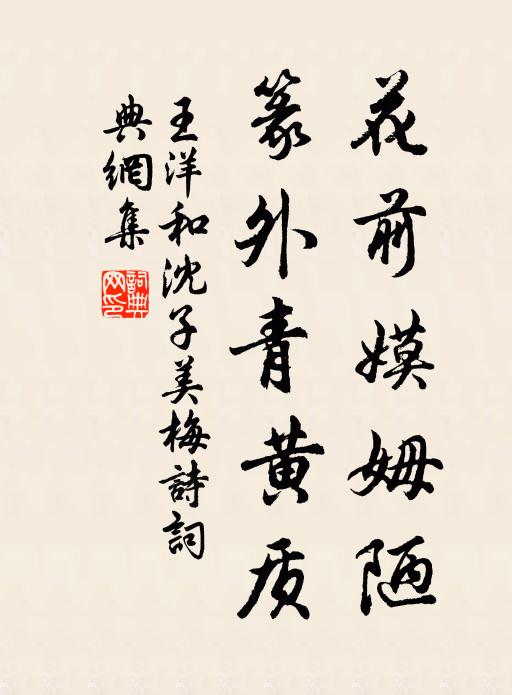 花前嫫姆陋
篆外青黄质
王洋和沈子美梅詩詞
典網集
詞典網印